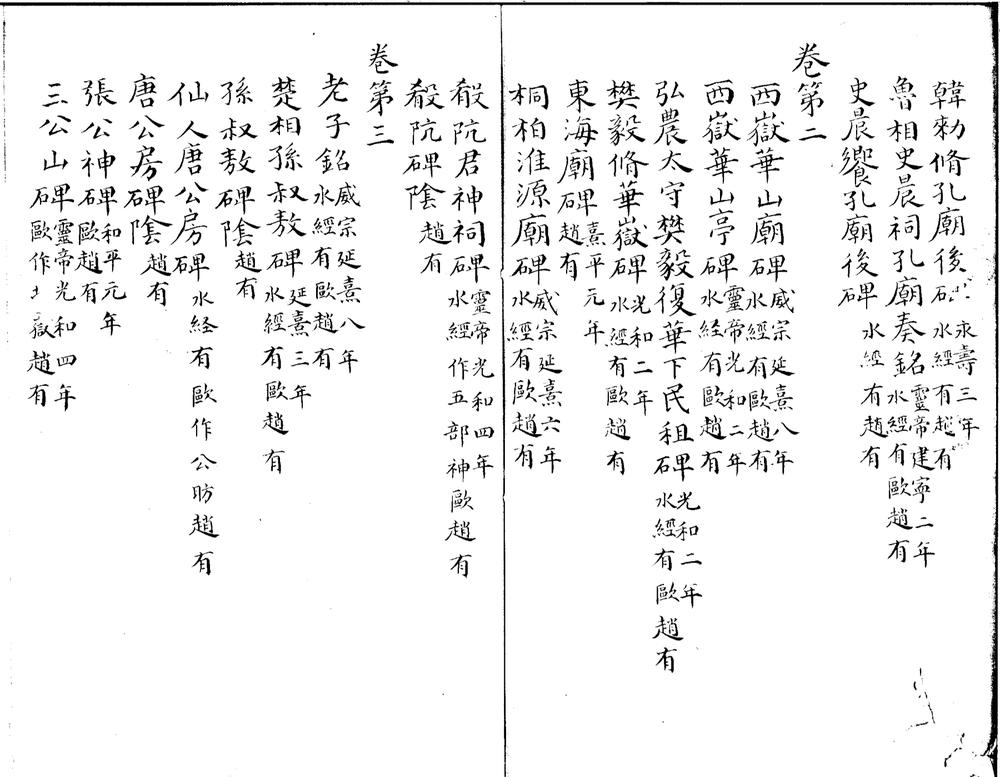 韓勑脩孔廟後 永壽三年水經有趙有
魯相史晨祠孔廟奏銘 靈帝建寧二年水經有歐趙有
史晨饗孔廟後碑 水經有趙有
卷第二
西嶽華山廟碑 威宗延熹八年水經有歐趙有
西嶽華山亭碑 靈帝光和二年水經有歐趙有
弘農太守樊毅復華下民租碑 光和二年水經有歐趙有
樊毅脩華嶽碑 光和二年水經有歐趙有
東海廟碑 熹平元年趙有
桐柏淮源廟碑 威宗延熹六年水經有歐趙有
殽阬君神祠碑 靈帝光和四年水經作五部神歐趙有
殽阬碑陰 趙有
卷第三
老子銘 威宗延熹八年水經有歐趙有
楚相孫叔敖碑 延熹三年水經有歐趙有
孫叔敖碑陰 趙有
仙人唐公房碑 水経有歐作公昉趙有
唐公房碑陰 趙有
張公神碑 和平元年歐趙有
三公山碑 靈帝光和四年歐作嶽趙有